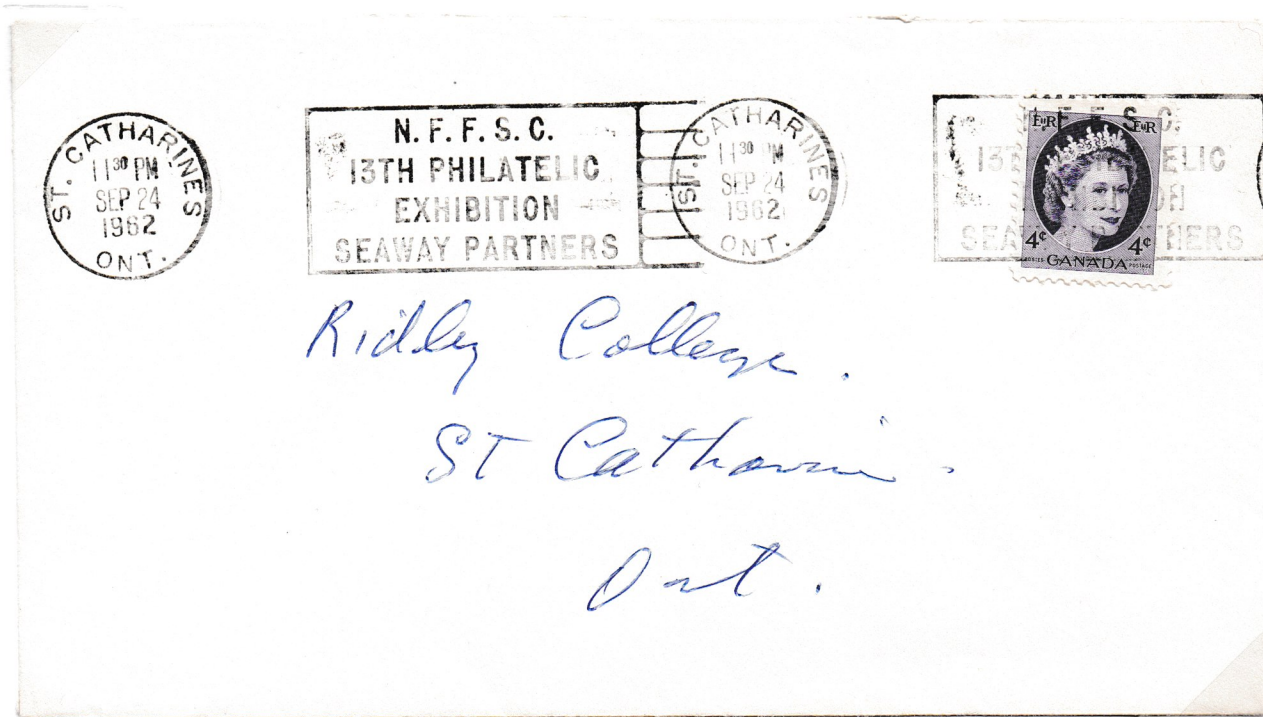 ST. CATHARINES
11 30 PM
SEP 24
1962
ONT.
N. F. F. S. C.
13TH PHILATELIC
EXHIBITION
SEAWAY PARTNERS
ST. CATHARINES
11 30 PM
SEP 24
1962
ONT.
F. F. S. C.
13 ELIC
ON
SEA NERS
EIIR EIIR
4¢ 4¢
CANADA
POSTAGE
Ridley College.
St Catharine.
Ont.